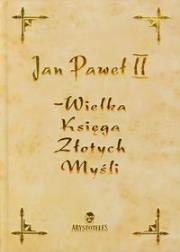 Jan Paweł II
-Wielka
Księga
Złotych
Myśli
ARYSTOTELES